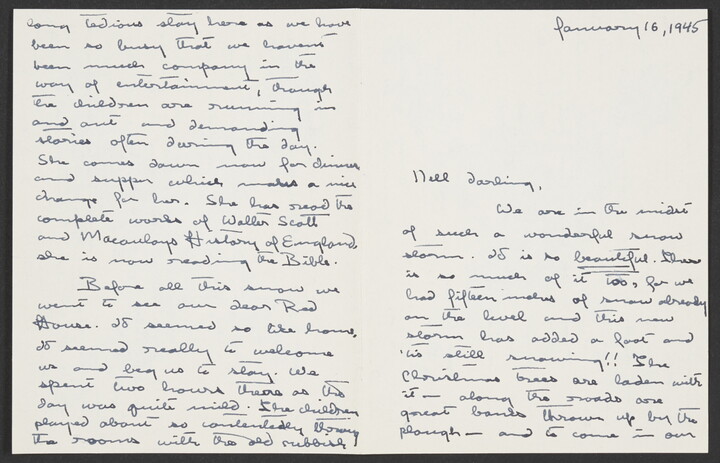 long tedious stay here as we have
been so busy that we havent
been much company in the
way of entertainment, though
the children are running in
and out and demanding
stories often during the day.
She comes down now for dinner
and supper which makes a nice
change for her. She has read the
complete works of Walter Scott
and Macaulays History of England
she is now reading the Bible.
Before all this snow we
went to see our dear Red
House. It seemed so like home,
it seemed really to welcome
us and beg us to stay. We
spent two hours there as the
day was quite mild. The children
played about so contentedly throug
the rooms with the old rubbish
January 16, 1945
Nell darling,
We are in the midst
of such a wonderful snow
storm. It is so beautiful. There
is so much of it too, for we
had fifteen inches of snow already
on the level and this new
storm has added a foot and
'tis still snowing!! The
Christmas trees are laden with
it — along the roads are
great banks thrown up by the
plough — and to come in our